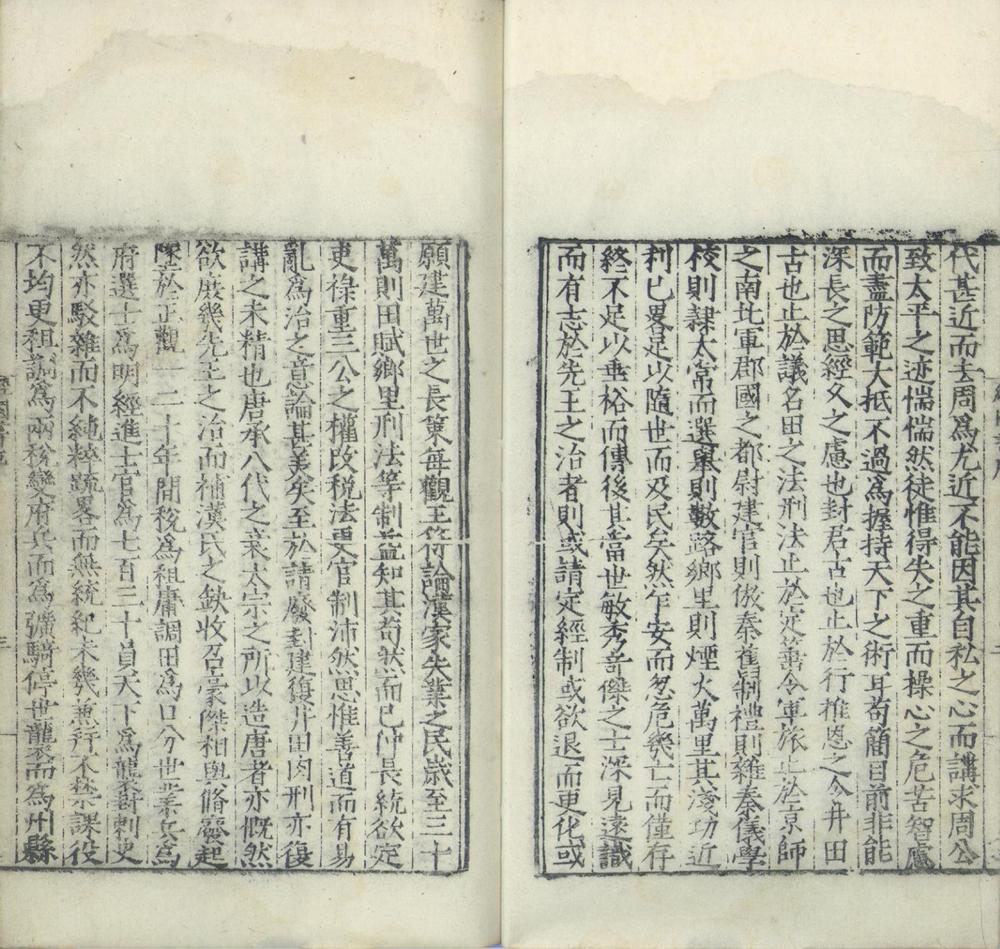 代甚近而去周為尤近不能因其自私之心而講求周公
致太平之迹惴惴然徒惟得失之重而操心之危苦智慮
而盡防範大抵不過為握持天下之術耳苟簡目前非能
深長之思經久之慮也封君古也止於行推恩之令井田
古也止於議名田之法刑法止於定箠令軍旅止於京師
之南北軍郡國之都尉建官則倣秦舊制禮則雜秦儀學
校則隸太常而選舉則數路鄉里則煙火萬里其淺功近
利已畧足以隨世而及民矣然乍安而忽危幾亡而僅存
終不足以垂裕而傳後其當世敏秀竒傑之士深見遠識
而有志於先王之治者則或請定經制或欲退而更化或
願建萬世之長策每觀王符論漢家失業之民歲至三十
萬則田賦鄉里刑法等制益知其苟然而已仲長統欲定
吏祿重三公之權改稅法更官制沛然思惟善道而有易
亂為治之意論甚美矣至於請廢封建復井田肉刑亦復
講之未精也唐承八代之衰太宗之所以造唐者亦慨然
欲庶幾先王之治而補漢氏之缺收召豪傑相與脩廢起
墜於正觀一二十年間稅為租庸調田為口分世業兵為
府選士為明經進士官為七百三十員天下為襲封刺史
然亦駁雜而不純粹疏畧而無統紀未幾兼并不禁課役
不均更租調為兩稅變府兵而為彍騎停世襲而為州縣